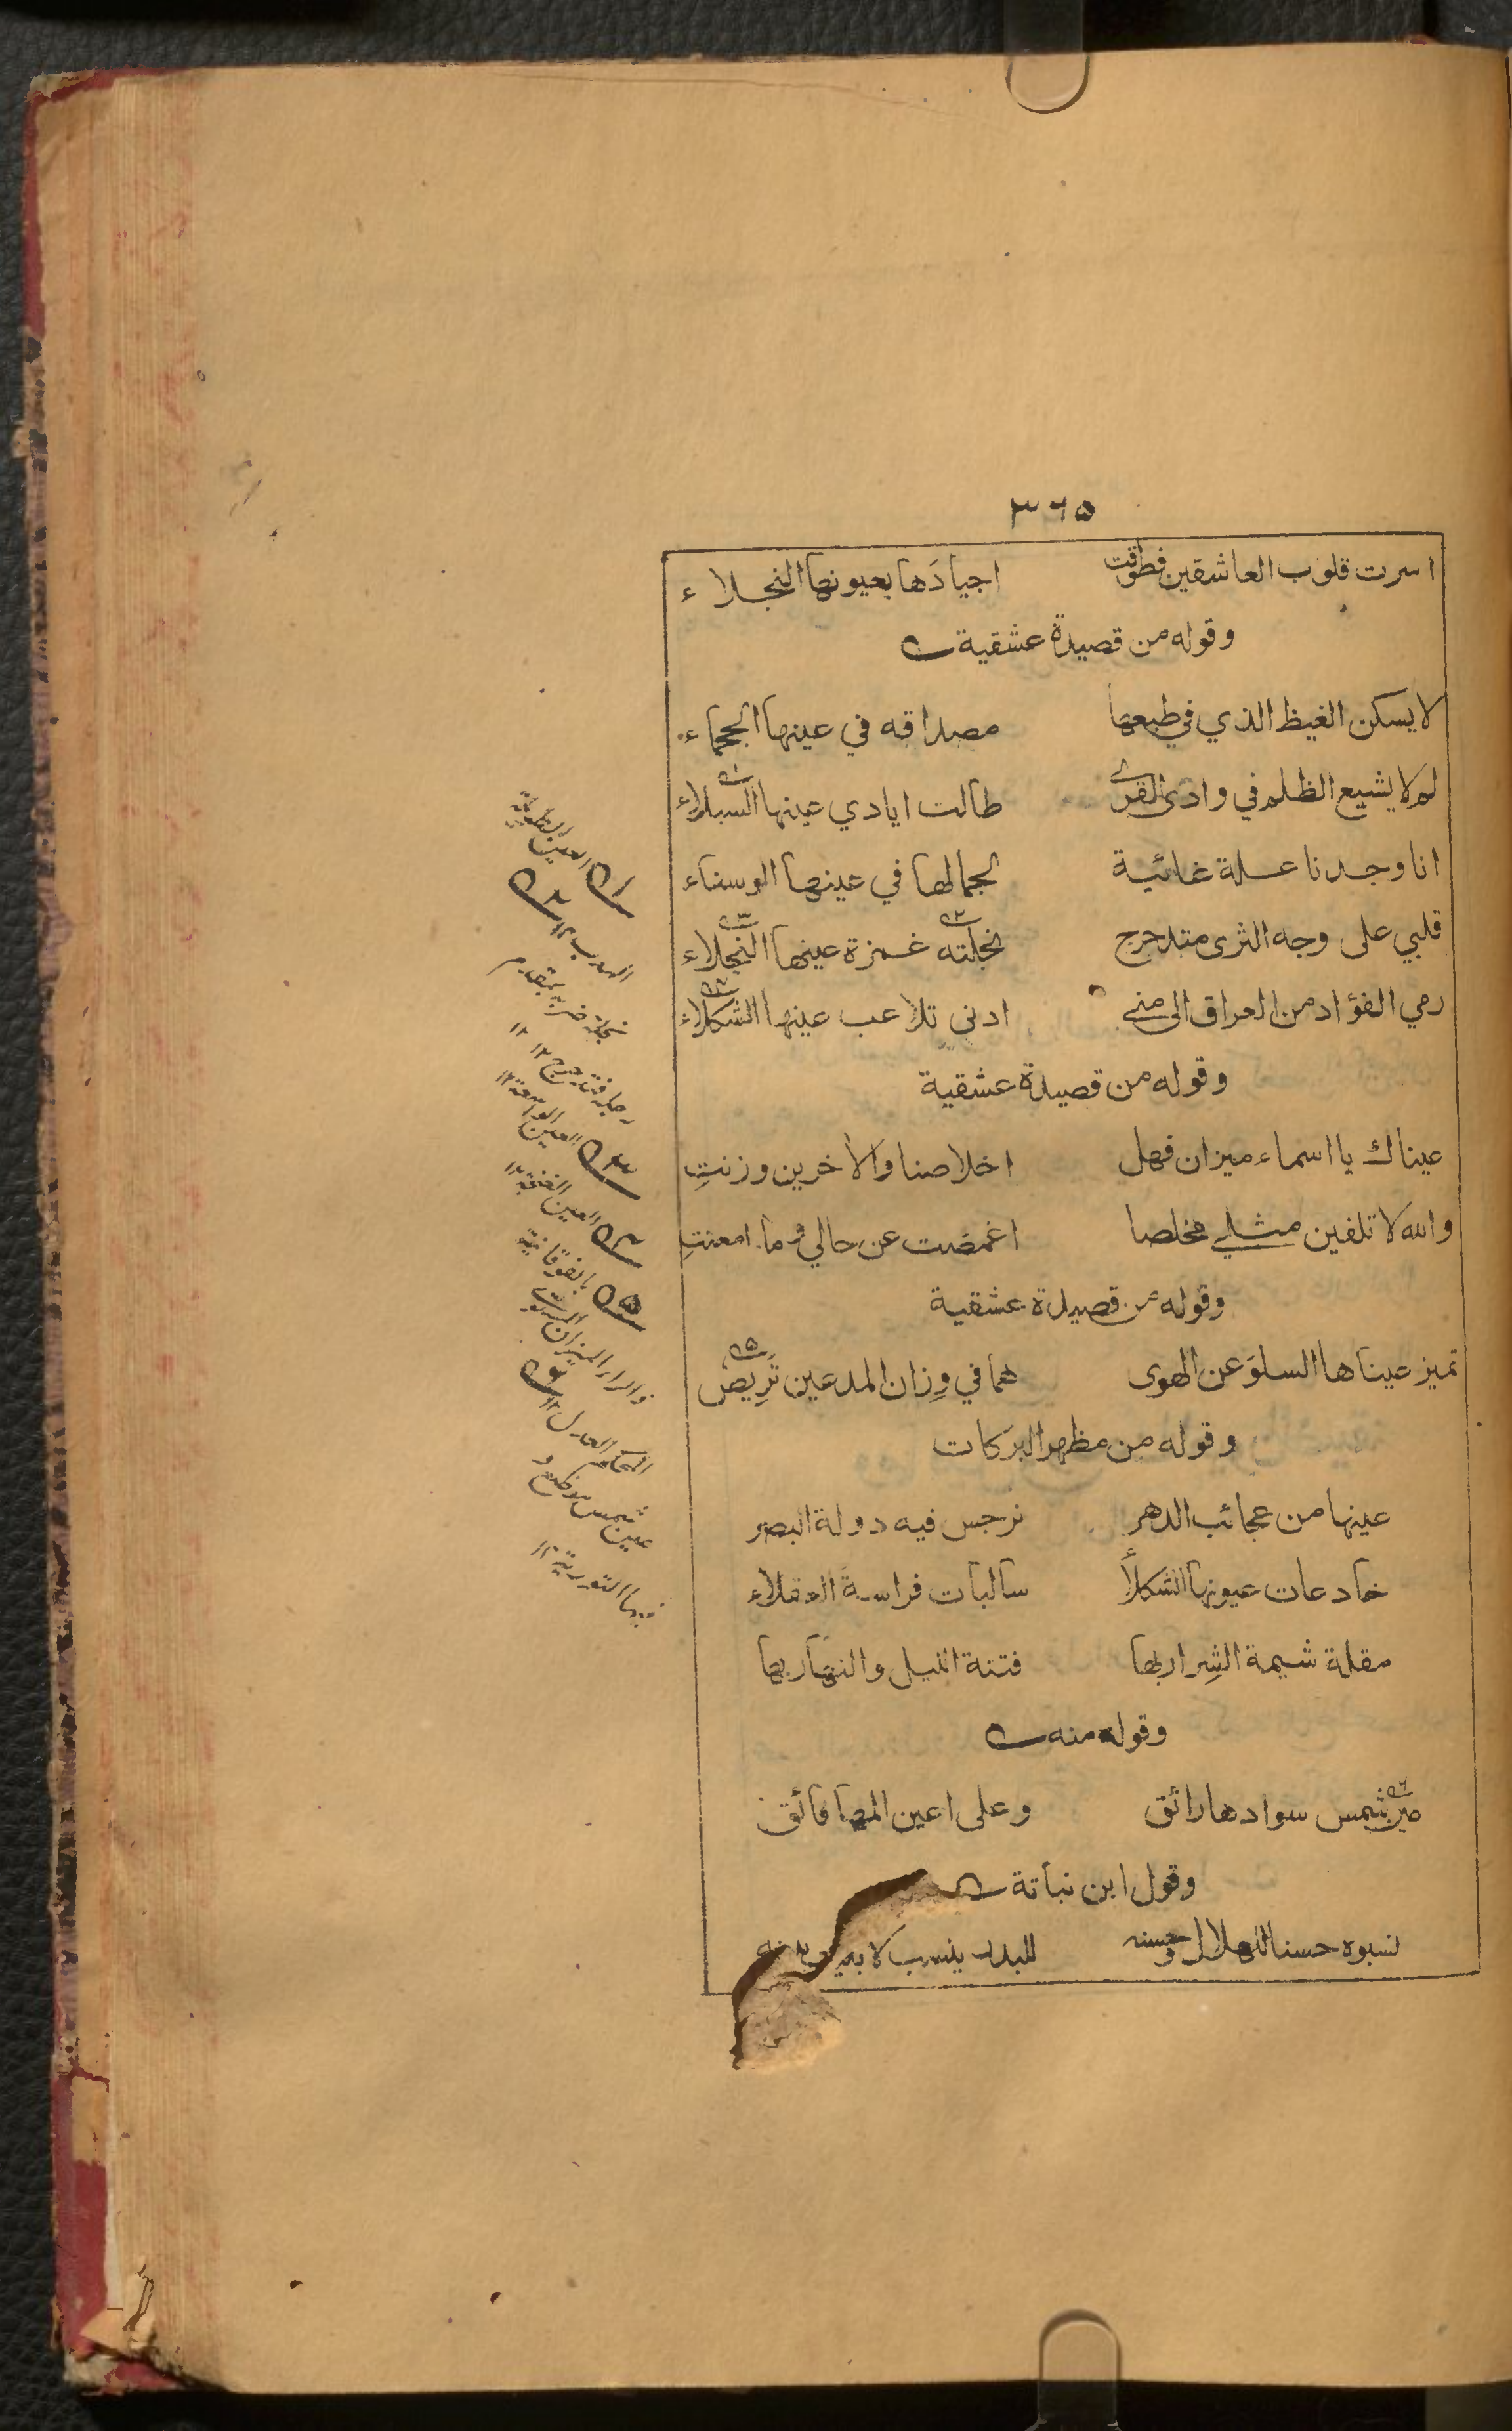 ٣٦٥
اسرت قلوب العاشقين فطوقت اجيادَها بعيونها النجلاء
وقوله من قصيدة عشقية
لا يسكن الغيظ الذي في طبعها مصداقه في عينها الجحماء
لم لا يشيع الظلم في وادى القرى طالت ايادي عينها السبلاء
انا وجدنا علة غائية لجمالها في عينها الوسناء
قلبي على وجه الثرى متدحرج نجلته غمزة عينها النجلاء
رمي الفؤاد من العراق الى منى ادنى تلاعب عينها الشكلاء
وقوله من قصيدة عشقية
عيناك يا اسماء ميزان فهل اخلاصنا والاخرين وزنتِ
والله لا تلفين مثلي مخلصا اغمضت عن حالي وما امعنتِ
وقوله من قصيدة عشقية
تميز عيناها السلوَ عن الهوى هما في وِزان المدعين تَرِيصُ
وقوله من مظهر البركات
عينها من عجائب الدهر نرجس فيه دولة البصر
خادعات عيونها الشكلأ سالبات فراسةَ العقلاء
مقلة شيمة الشِرار بها فتنة الليل والنهار بها
وقوله منه
عين شمس سوادها رائق وعلى اعين المها فائق
وقول ابن نباتة
نسبوه حسنا للهلال وحسنه للبدر ينسب لا
العين الطويلة
الهدب ١٢
نجله ضربه بمقدم
رجله فتدحرج ١٢
العين الواسعة ١٢
العين
بالفوقانية
والراء الميزان
المحكم العدل ١٢
عين شمس موضع و
فيها التورية ١٢